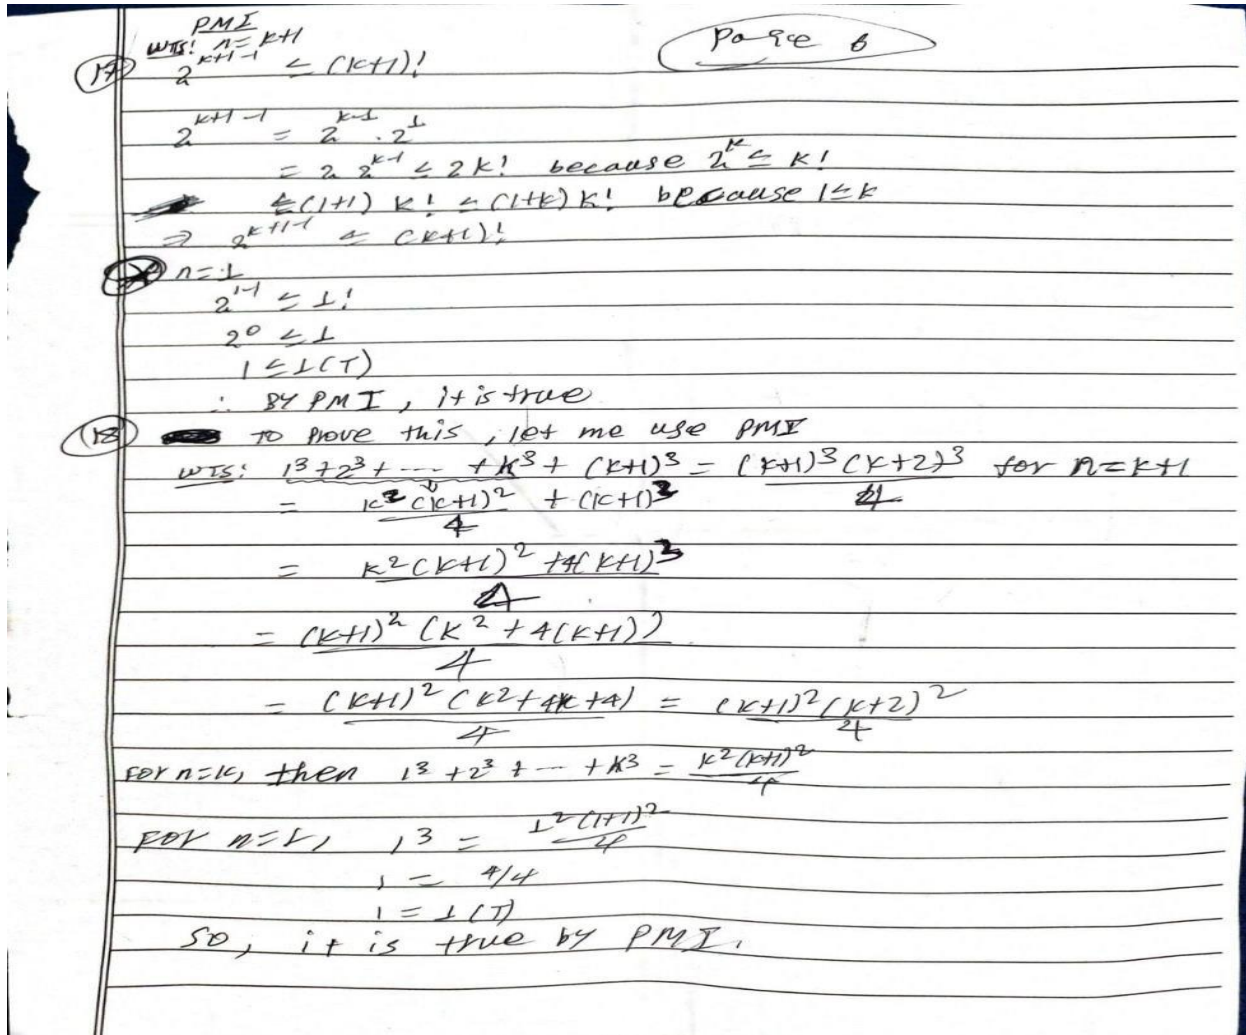 PMI
Page 6
WTS: n = k+1
(17) 2^{k+1-1} ≤ (k+1)!
2^{k+1-1} = 2^{k-1} · 2^1
= 2 2^{k-1} ≤ 2k! because 2^k ≤ k!
≤ (1+1) k! ≤ (1+k) k! because 1≤k
⇒ 2^{k+1-1} ≤ (k+1)!
n=1
2^{1-1} ≤ 1!
2^0 ≤ 1
1 ≤ 1 (T)
∴ BY PMI, it is true
(18) To prove this, let me use PMI
WTS: 1^3+2^3+ --- +k^3 + (k+1)^3 = (k+1)^3 (k+2)^3 / 4 for n=k+1
= k^2 (k+1)^2 / 4 + (k+1)^3
= k^2 (k+1)^2 + 4(k+1)^3 / 4
= (k+1)^2 (k^2 + 4(k+1)) / 4
= (k+1)^2 (k^2+4k+4) / 4 = (k+1)^2 (k+2)^2 / 4
For n=k, then 1^3 + 2^3 + --- + k^3 = k^2 (k+1)^2 / 4
For n=1, 1^3 = 1^2 (1+1)^2 / 4
1 = 4/4
1 = 1 (T)
So, it is true by PMI.